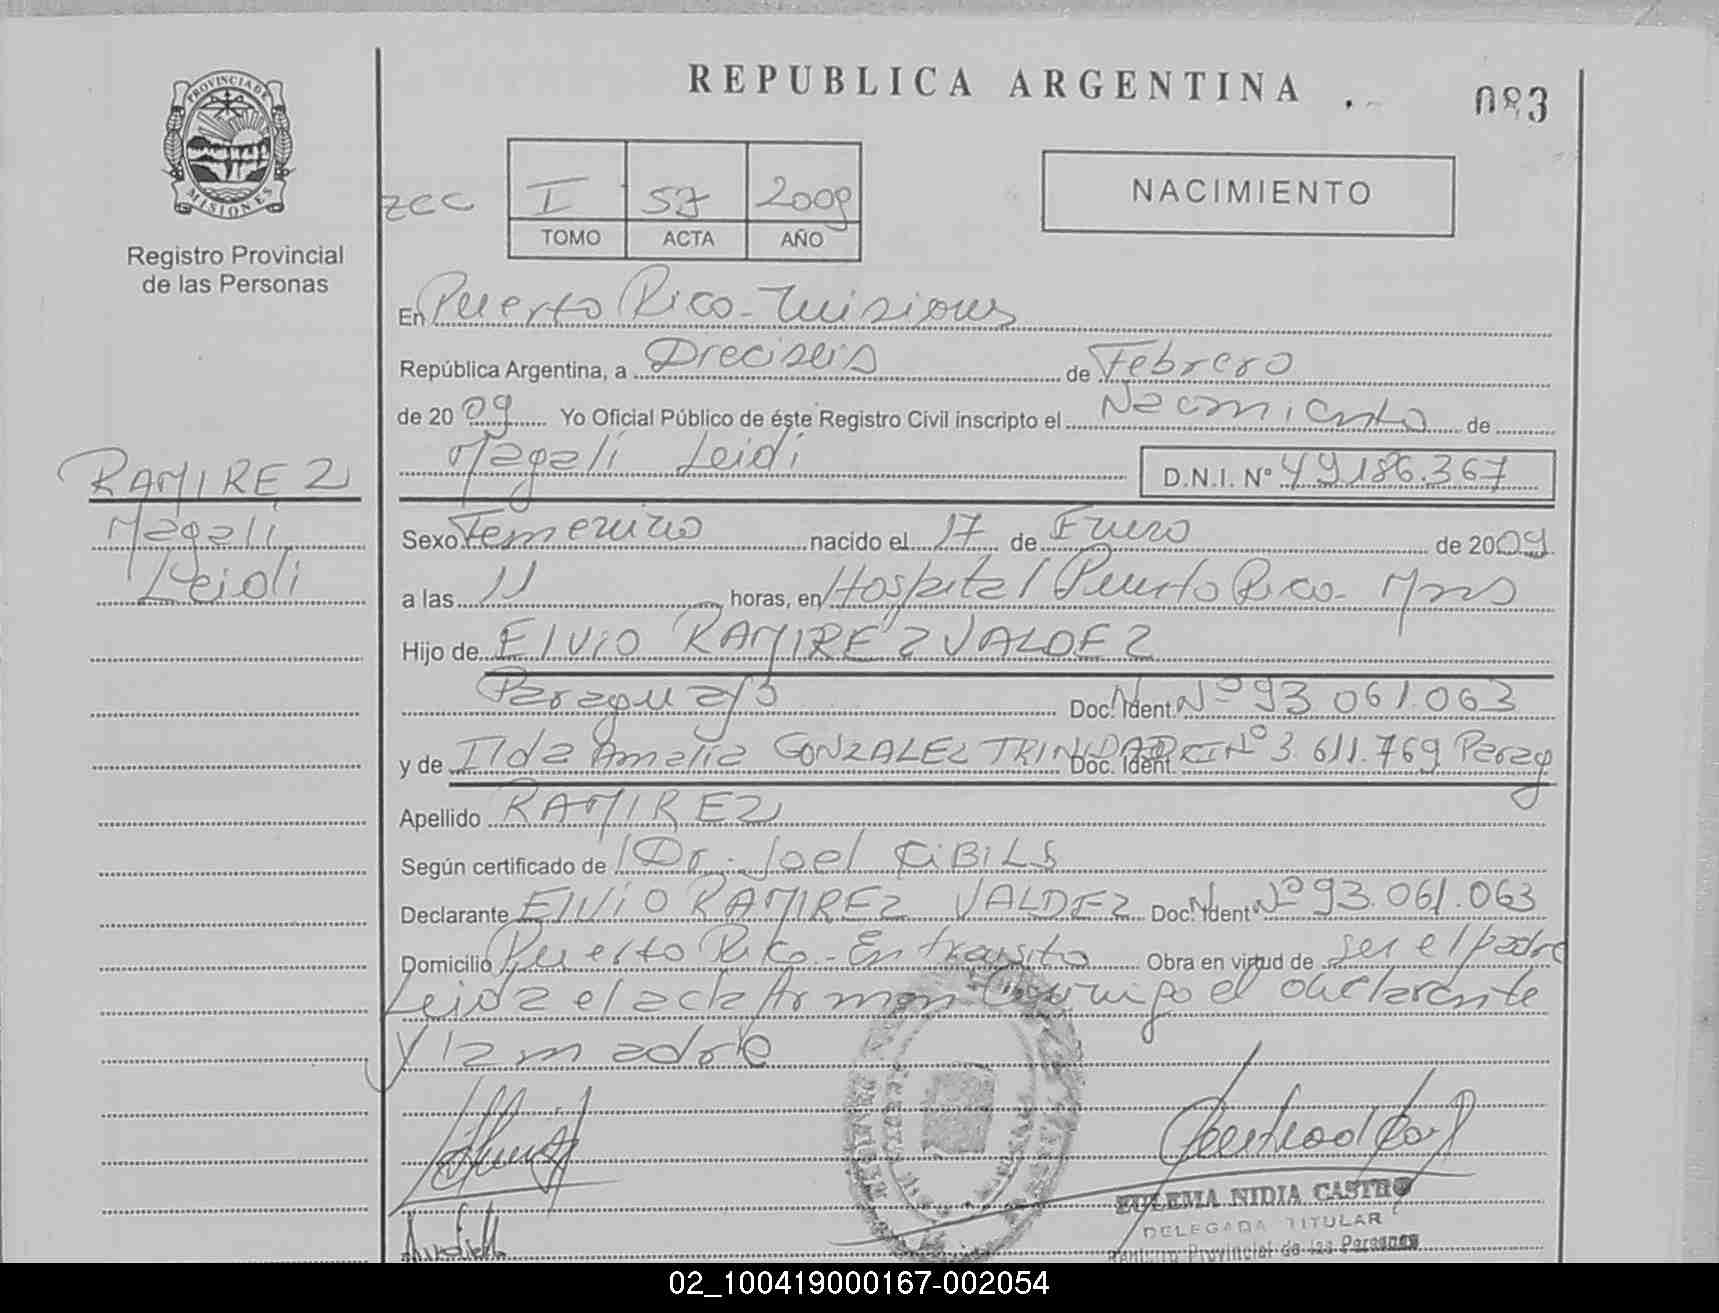 REPUBLICA ARGENTINA
083
PROVINCIA DE
MISIONES
Registro Provincial
de las Personas
zcc I 57 2009
TOMO ACTA AÑO
NACIMIENTO
En Puerto Rico - Misiones
República Argentina, a Dieciseis de Febrero
de 2009 Yo Oficial Público de éste Registro Civil inscripto el Nacimiento de
Magali Leidi D.N.I. Nº 49.186.367
RAMIREZ
Magali
Leidi
Sexo Femenino nacido el 17 de Enero de 2009
a las 11 horas, en Hospital Puerto Rico - Mnes
Hijo de Elvio RAMIREZ VALDEZ
Paraguayo Doc. Ident. Nº 93 061.063
y de Ilda Amalia GONZALEZ TRINIDAD Doc. Ident. CI Nº 3.611.769 Parag
Apellido RAMIREZ
Según certificado de Dr. Joel CIBILS
Declarante Elvio RAMIREZ VALDEZ Doc. Ident Nº 93.061.063
Domicilio Puerto Rico - En transito Obra en virtud de ser el padre
Leida el acta firman conmigo el declarante
y la madre
EULEMA NIDIA CASTRO
DELEGADA TITULAR
Registro Provincial de las Personas
02_100419000167-002054